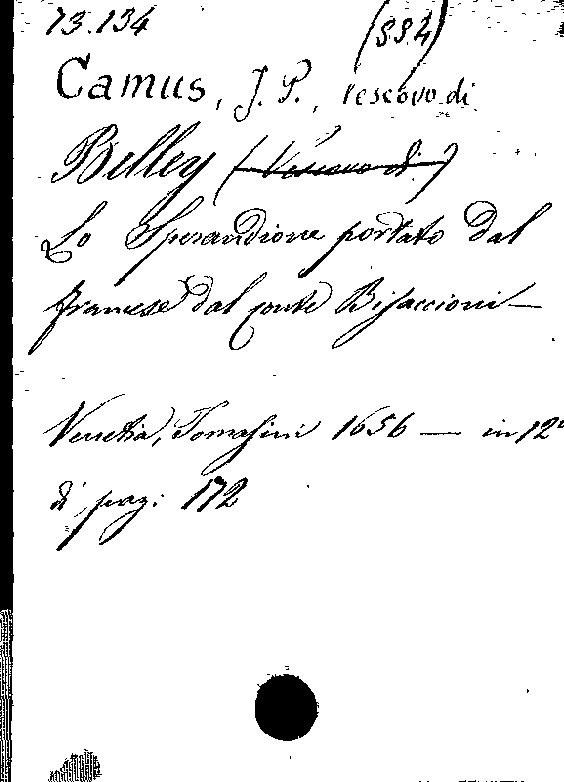 73.134 (SS4)
Camus, J. P., vescovo di
Belley (Vescovo di)
Lo Sperandione portato dal
francese dal conte Bisaccioni —
Venetia, Tomasini 1656 — in 12º
di pag: 172